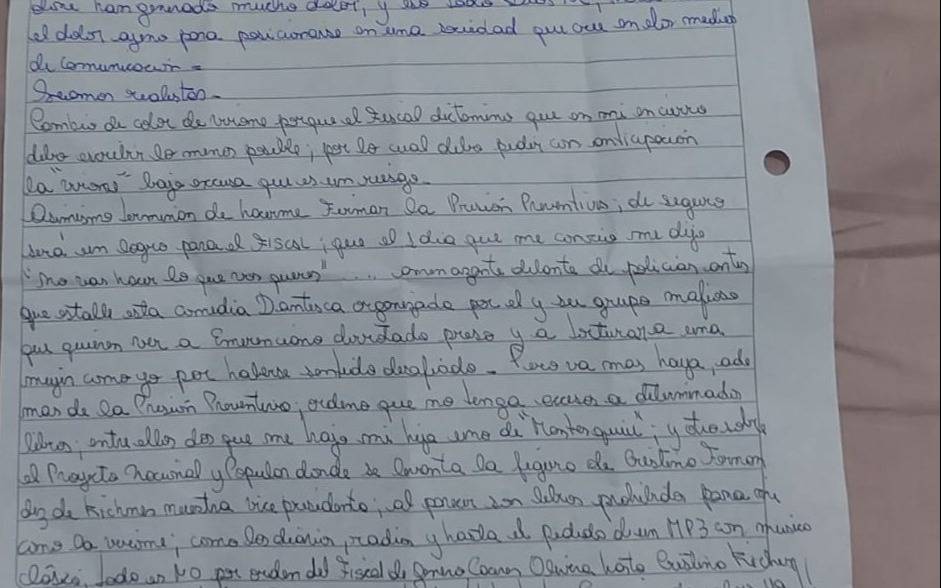 han generado mucho dolor, y
el dolor ajeno para posicionarse en una sociedad que cree en los medios
de comunicación =
Seamos realistas -
Cambio de color de birome porque el Fiscal dictamino que en mi encierro
debo escribir lo menos posible; por lo cual debo pedir con anticipación
la "birome" bajo excusa que es un riesgo.
Asimismo terminan de hacerme Firmar la Prisión Preventiva; de seguro
será un logro para el Fiscal; que el 1 dia que me conocio me dijo
"no vas hacer lo que vos queres" .... amenazante delante de policias antes
que estalle esta comedia Dantesca organizada por el y su grupo mafioso
que quieren ver a Emerenciano derrotado preso y a torturar a una
mujer como yo por haberse sentido desafiado - Pero va mas haya, ade
mas de la Prisión Preventiva; ordeno que no tenga acceso a determinados
libros; entre ellos dos que me trajo mi hija uno de "Montesquiu"; y otro sobre
el Proyecto Nacional y Popular donde se levanta la figura de Cristina Fernan
dez de Kichner nuestra vice presidenta; al parecer son libros prohibidos para mi
como la birome; como los diarios, radios y hasta el pedido de un MP3 con musica
clásica. todo es NO por orden del Fiscal de Caceres Olivera hasta Cristina Kichner